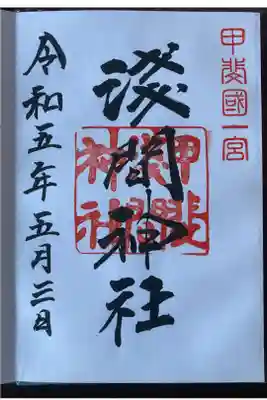 甲斐國一宮
淺間神社
甲斐
神社
令和五年五月三日